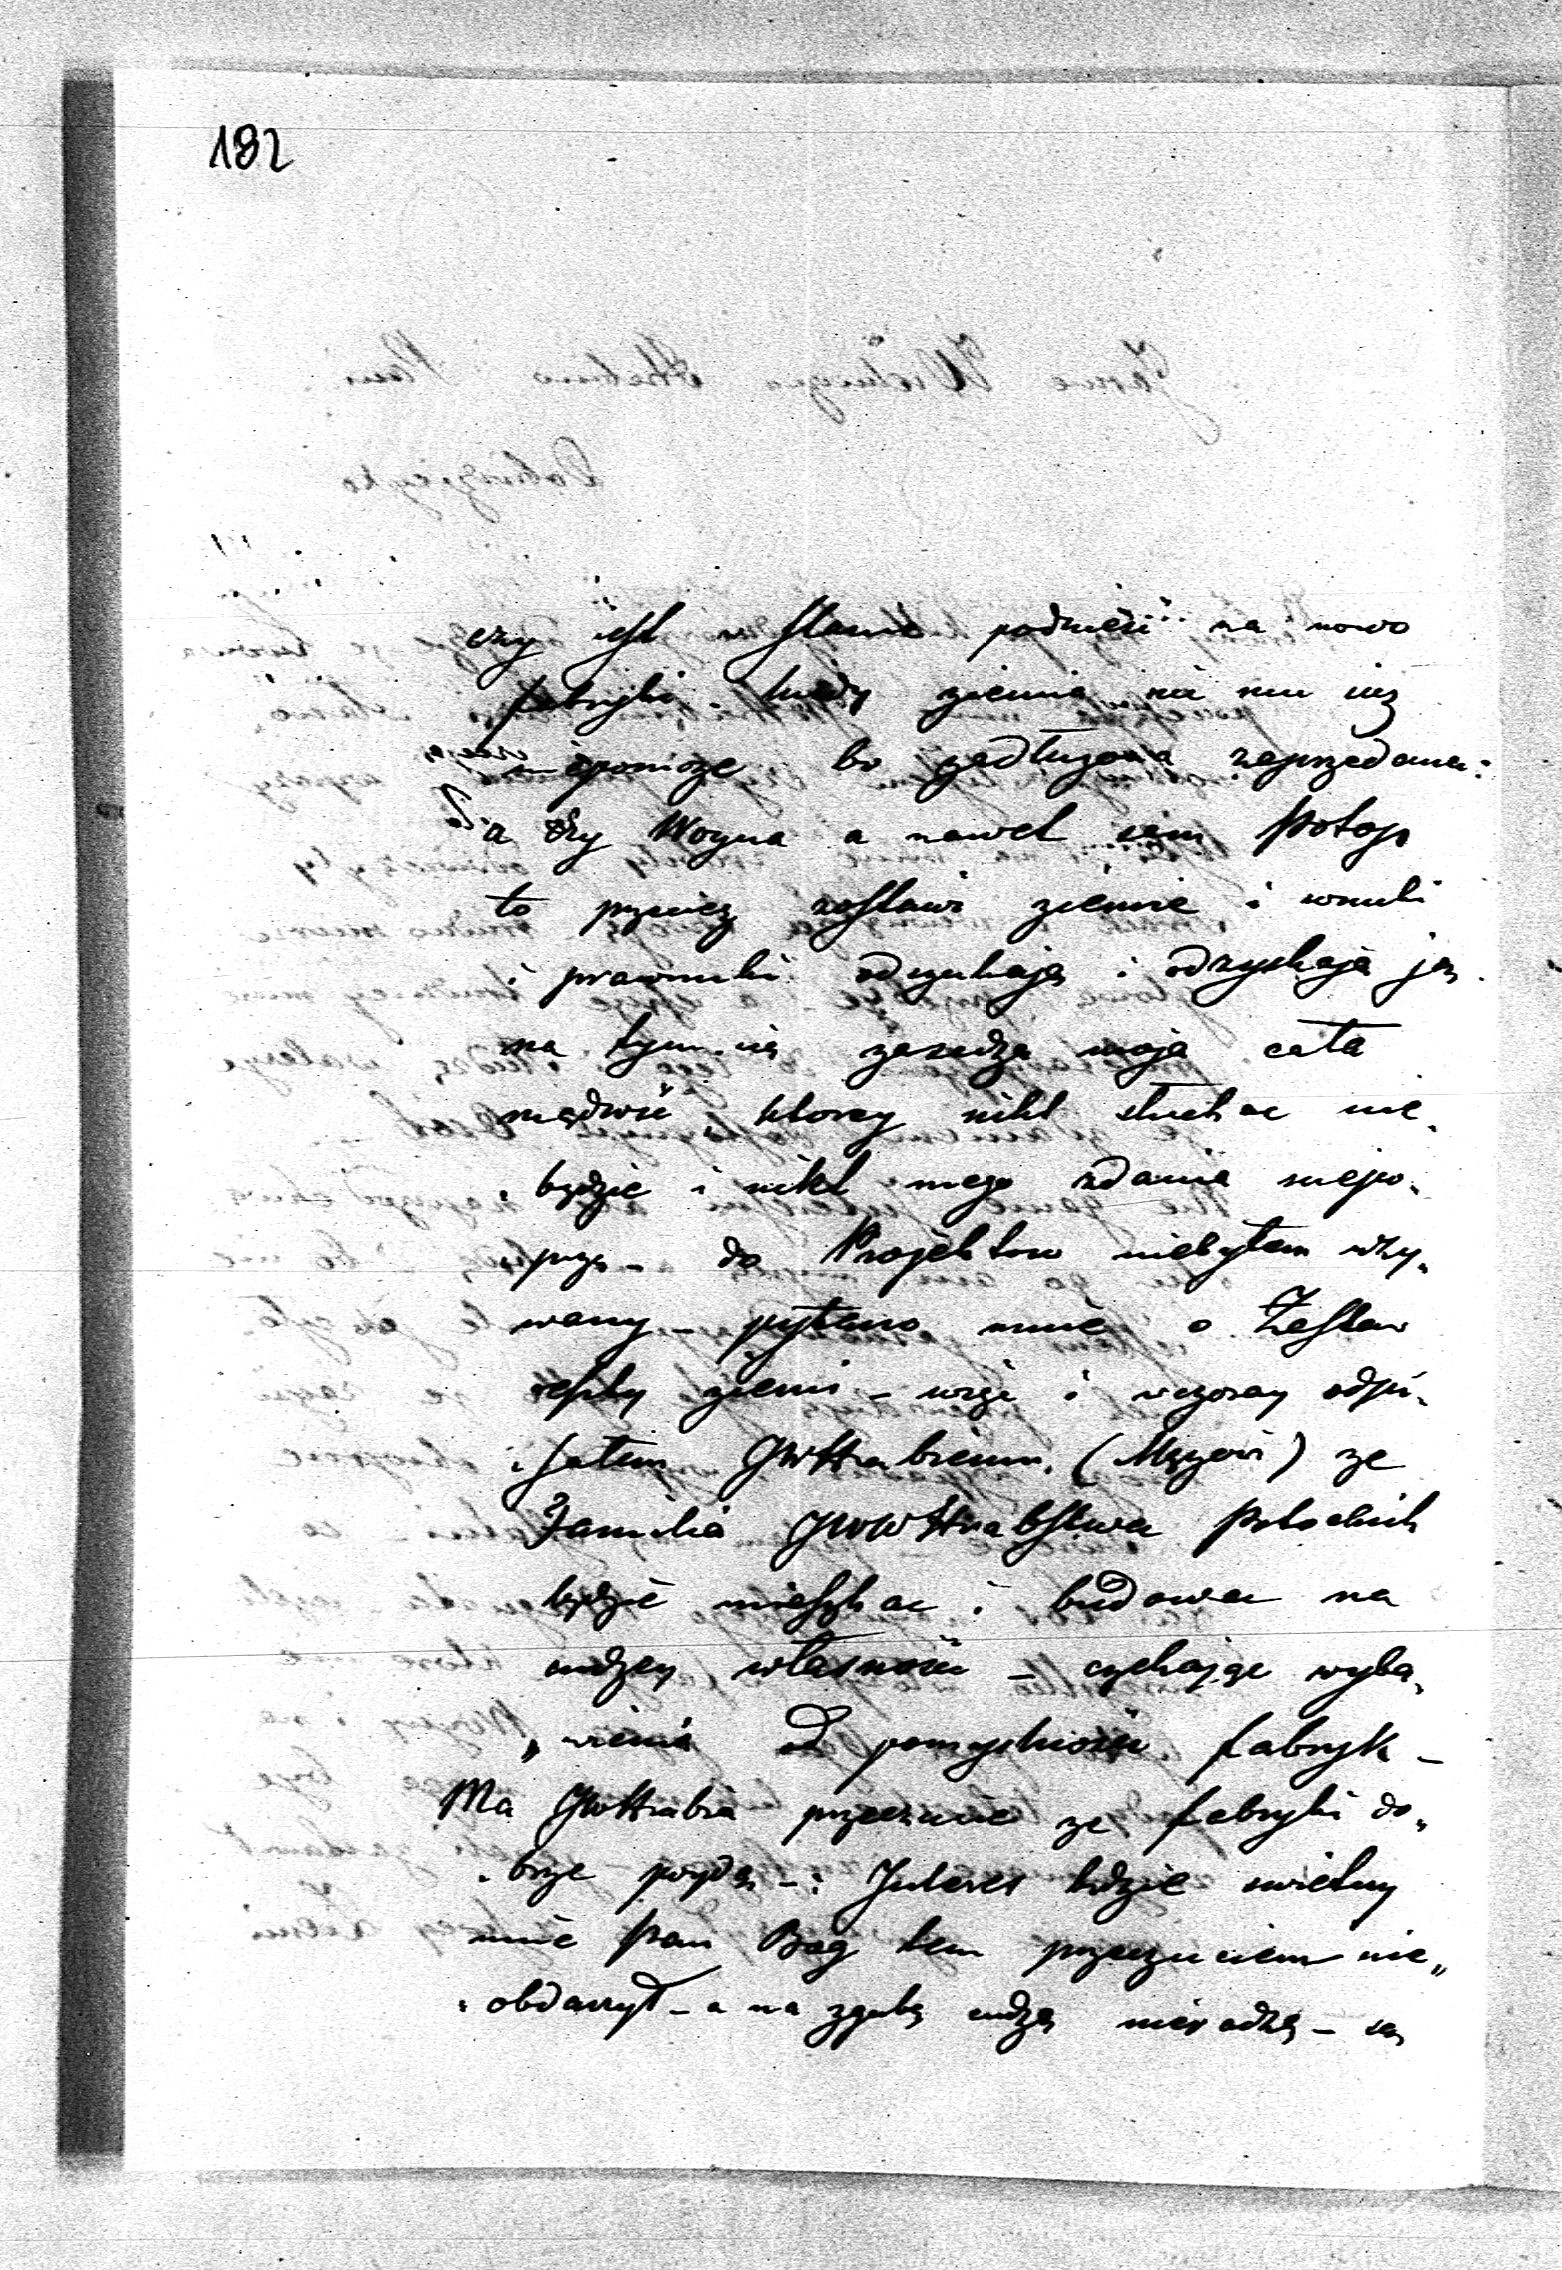 182
czy jest w stanie podnieść na nowo
fabryki kiedy ziemia nic mu już
niepomoze bo zadłużona zaprzedana:
a czy Woyna a nawet sam Potop
to przeciez zostawi ziemie i wnuki
i prawnuki odszukają i odzyskają ją
na tym się zasadza moja cała
mądrość ktorey nikt słuchac nie
będzie i nikt mego zdania niepo-
prze – do Projektow niebyłem wzy-
wany – pytano mnie o Zastaw
reszty ziemi – więc i wczoray odpi-
sałem JWHrabiemu (Męzowi) ze
Familia JWWHrabstwa Potockich
będzie mieszkac i budowac na
cudzey własności – czekając wyba-
wienia od pomyslności fabryk –
Ma JWHrabia przeczucie ze fabryki do-
brze poydą – : Interes będzie swietny
mnie Pan Bog tem przeczuciem nie
obdarzył – a na zgubę cudzą nieradzę – są